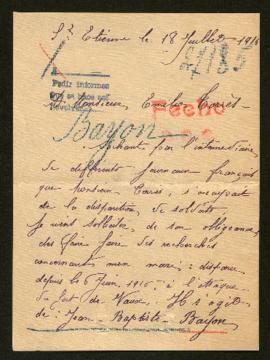 St Etienne le 18 Juillet 191
27185
A
Pedir informes
que se hace
Monsieur, Emilio
Fecho
Bayon
Sachant par l'intermédiaire,
de différents journaux français
que Monsieur s'occupait
de la disparition, de soldats
Je viens solliciter, de son obligeance,
des faire faire des recherches
concernant mon mari; disparu
depuis le 6 Juin 1916 à l'attaque
du fort de Vaux. Il s'agit
de: Jean-Baptiste Bayon